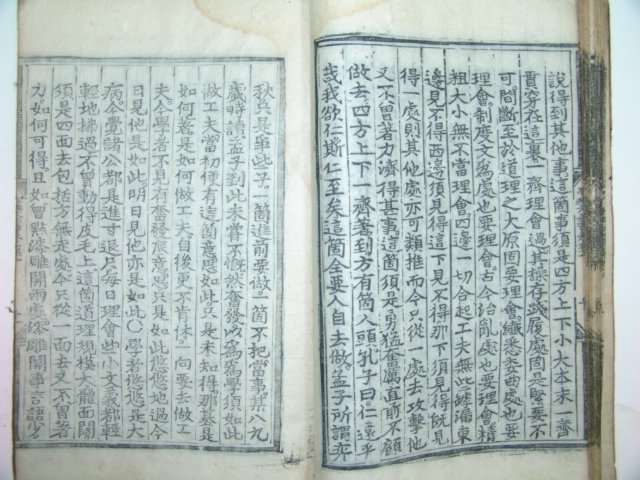 說得到其他事這箇事須是四方上下小大本末一齊
貫穿在這裏一齊理會過其操存踐履處固是緊要不
可間斷至於道理之大原固要理會纖悉委曲處也要
理會制度文爲處也要理會古今治亂處也要理會精
粗大小無不當理會四邊一切合起工夫無些罅漏東
邊見不得西邊須見得這下見不得那下須見得旣見
得一處則其他處亦可類推而今只從一處去攻擊他
又不曾著力濟得甚事這箇須是勇猛奮厲直前不顧
做去四方上下一齊著到方有箇入頭孔子曰仁遠乎
哉我欲仁斯仁至矣這箇全要人自去做孟子所謂奕
秋只是爭些子一箇進前要做一箇不把當事某八九
歲時讀孟子到此未嘗不慨然奮發以爲爲學須如此
做工夫當初便有這箇意思如此只是未知得那碁是
如何著是如何做工夫自後更不肯休一向要去做工
夫今學者不見有奮發底意思只是如此悠悠地過今
日見他是如此明日見他亦是如此○學者悠悠是大
病今覺諸公都是進寸退尺每日理會些小文義都輕
輕地掃過不曾動得皮毛上這箇道理規模大體面闊
須是四面去包括方無走處今只從一面去又不曾著
力如何可得且如曾點漆雕開兩處漆雕開事言語少